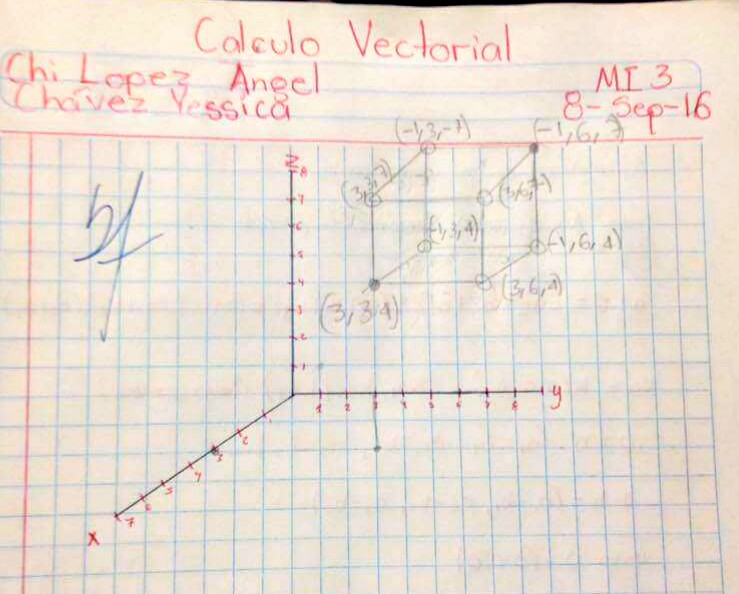 Calculo Vectorial
Chi Lopez Angel MI 3
Chávez Yessica 8-Sep-16
(-1,3,-7) (-1,6,7)
z
8
7 (3,3,7) (3,6,7)
6
5 (-1,3,4) (-1,6,4)
4
3 (3,3,4) (3,6,4)
2
1
1 2 3 4 5 6 7 8 y
2
3
4
5
6
7
x